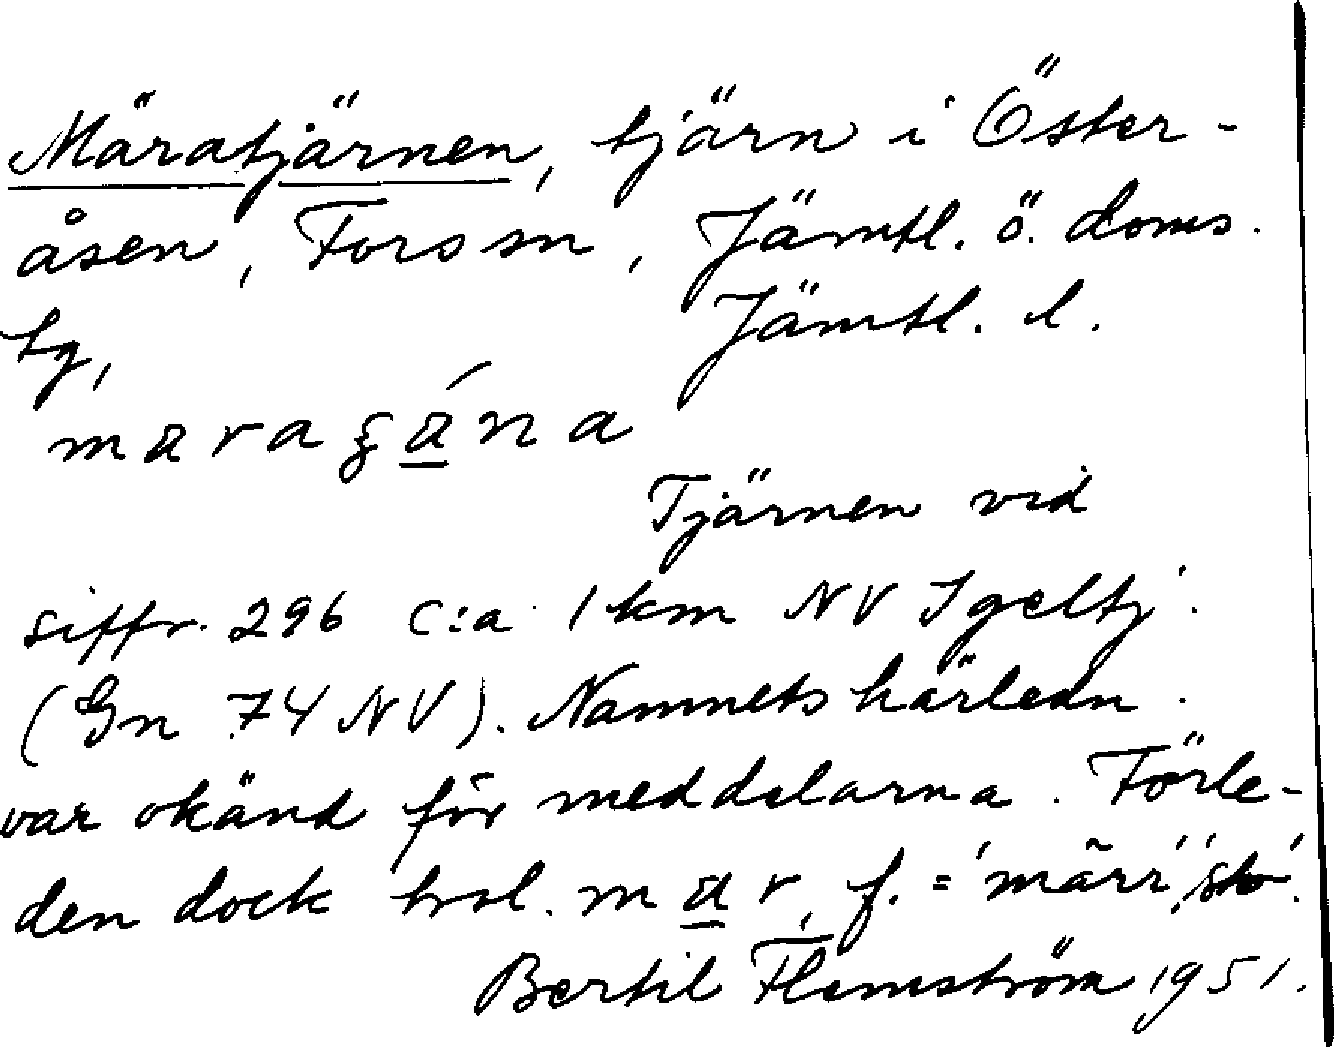 Märatjärnen, tjärn i Öster-
åsen, Fors sn, Jämtl. ö. doms.
tg, Jämtl. l.
maraʒána
Tjärnen vid
siffr. 296 c:a 1 km NV Igeltj.
(Gn 74 NV). Namnets härledn.
var okänd för meddelarna. Förle-
den dock trol. mar, f. = 'märr', 'sto'.
Bertil Flemström 1951.